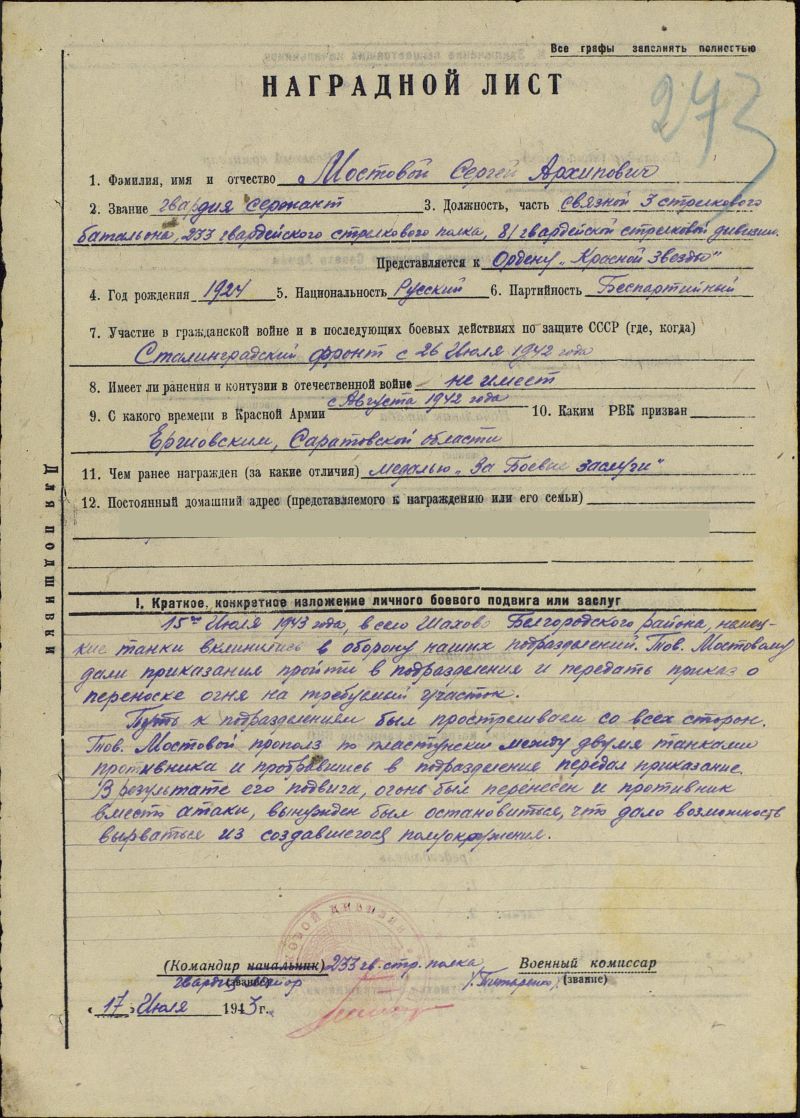 Все графы заполнять полностью
НАГРАДНОЙ ЛИСТ
273
1. Фамилия, имя и отчество Мостовой Сергей Архипович
2. Звание гвардия сержант 3. Должность, часть связной 3 стрелкового
батальона, 233 гвардейского стрелкового полка, 81 гвардейской стрелковой дивизии.
Представляется к Ордену „Красной Звезды"
4. Год рождения 1924 5. Национальность Русский 6. Партийность Беспартийный
7. Участие в гражданской войне и в последующих боевых действиях по защите СССР (где, когда)
Сталинградский фронт с 26 Июля 1942 года
8. Имеет ли ранения и контузии в отечественной войне не имеет
9. С какого времени в Красной Армии с Августа 1942 года 10. Каким РВК призван
Ершовским, Саратовской области
11. Чем ранее награжден (за какие отличия) медалью „За Боевые заслуги"
12. Постоянный домашний адрес (представляемого к награждению или его семьи)
Для подшивки
I. Краткое, конкретное изложение личного боевого подвига или заслуг
15го Июля 1943 года, в село Шахово Белгородского района, немец-
кие танки вклинились в оборону наших подразделений. Тов. Мостовому
дали приказания пройти в подразделения и передать приказ о
переноске огня на требуемый участок.
Путь к подразделениям был простреливаем со всех сторон.
Тов. Мостовой прополз по пластунски между двумя танками
противника и пробравшись в подразделение передал приказание.
В результате его подвига, огонь был перенесен и противник
вместо атаки, вынужден был остановиться, что дало возможность
вырваться из создавшегося полуокружения.
(Командир начальник) 233 гв. стр. полка Военный комиссар
гвардии майор (звание) /Титаренко/ (звание)
« 17 » Июля 1943 г.